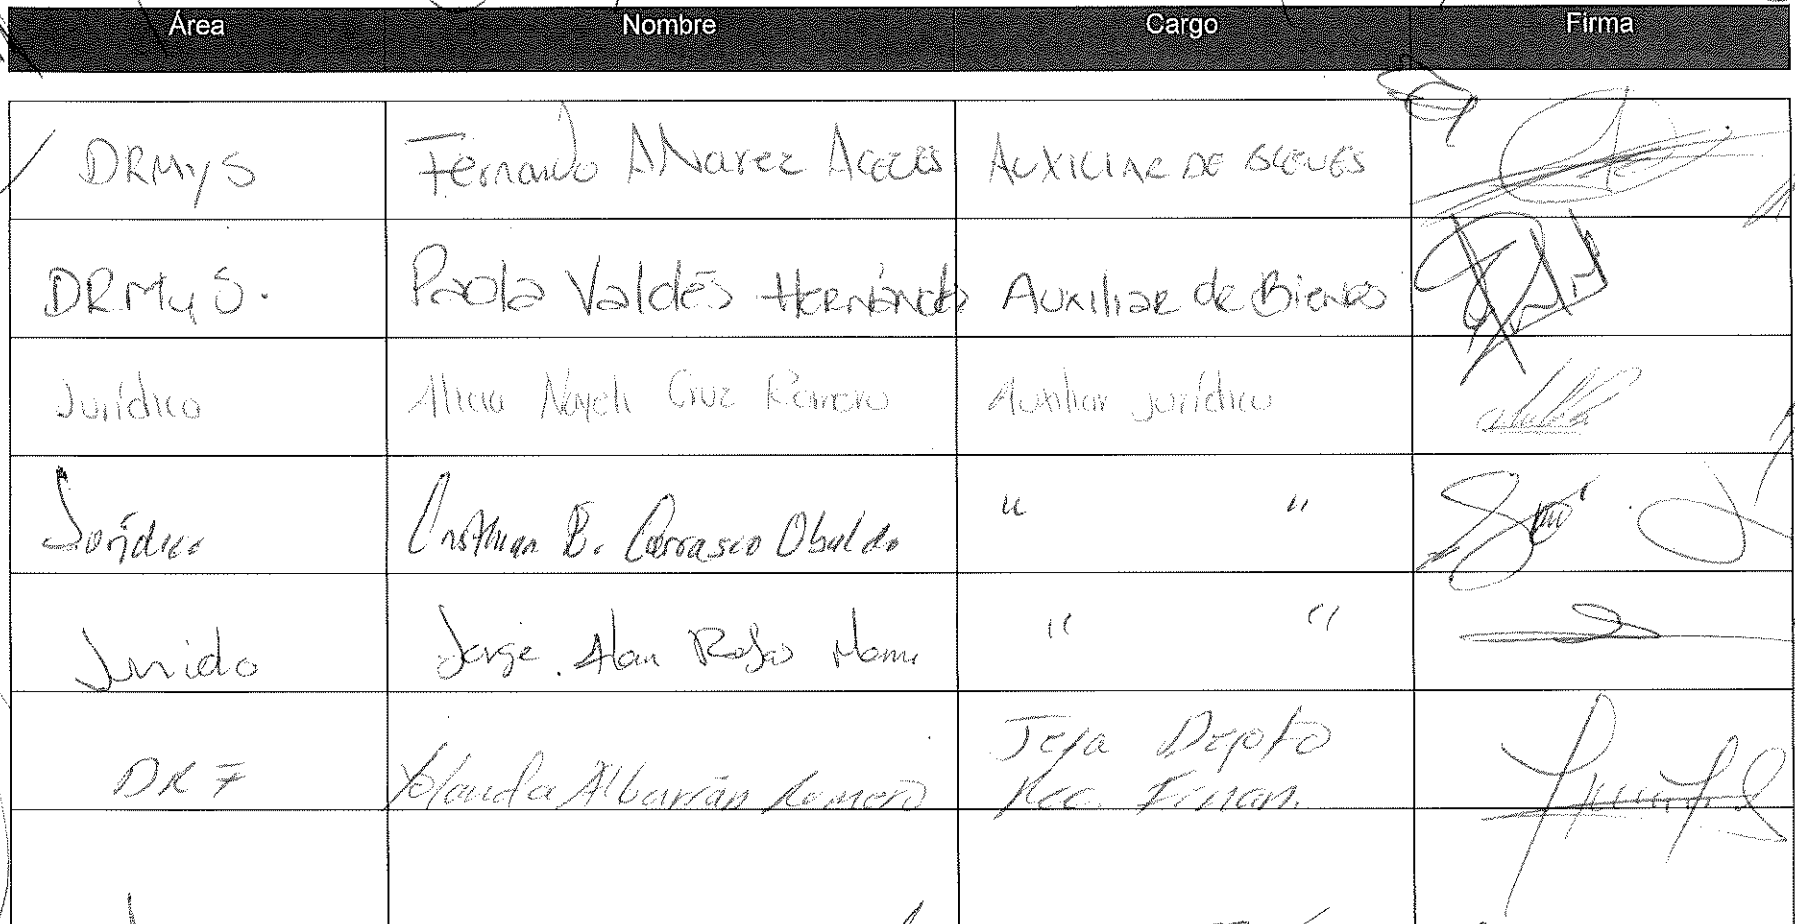 Área Nombre Cargo Firma
DRMyS Fernando Alvarez AUXILIAR DE BIENES
DRMyS. Paola Valdés Hernández Auxiliar de Bienes
Jurídico Alicia Nayeli Cruz Romero Auxiliar jurídico
Jurídico Cristhian B. Carrasco Obaldo " "
Jurido Jorge Alan Rojas " "
DRF Yolanda Albarrán Romero Jefa Depto
Rec. Finan.